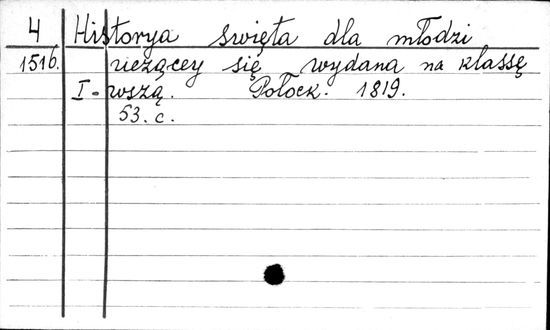 4 Historya święta dla młodzi
1516. uczącey się wydana na klassę
I-wszą. Połock. 1819.
53. c.